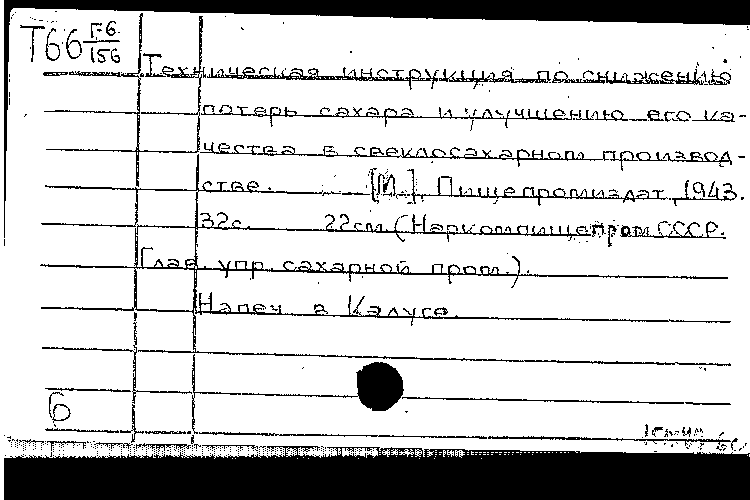 Т66 Г6
156
Техническая инструкция по снижению
потерь сахара и улучшению его ка-
чества в свеклосахарном производ-
стве. [М.], Пищепромиздат, 1943.
32с. 22см. (Наркомпищепром СССР.
Глав. упр. сахарной пром.).
Напеч. в Калусе.
6